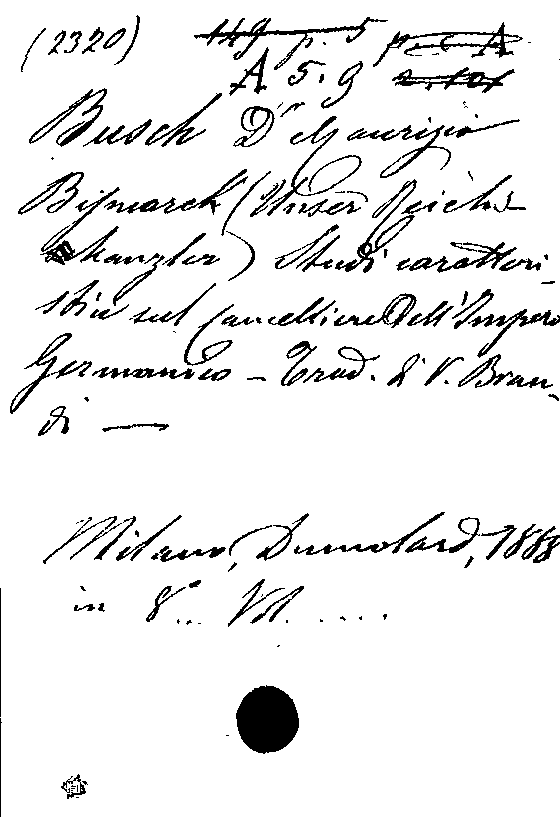 (2320) 149 p. 5 p. C A
A 5. 9 2.101
Busch Dr Maurizio
Bismarck (Unser Reichs-
kanzler) Studi caratteri-
stici sul Cancelliere Dell'Impero
Germanico - Trad. di V. Bran-
di —
Milano, Dumolard, 1888
in 8° .. Vol. .....